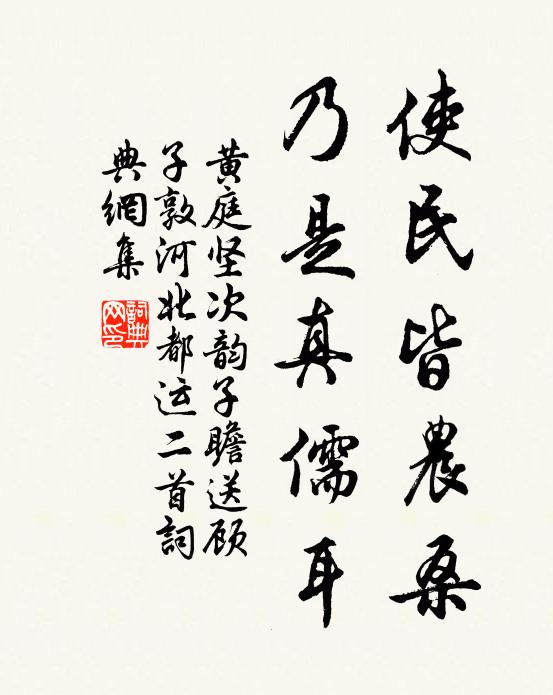 使民皆農桑
乃是真儒耳
黄庭坚次韵子瞻送顾
子敦河北都运二首詞
典網集
詞典
网印